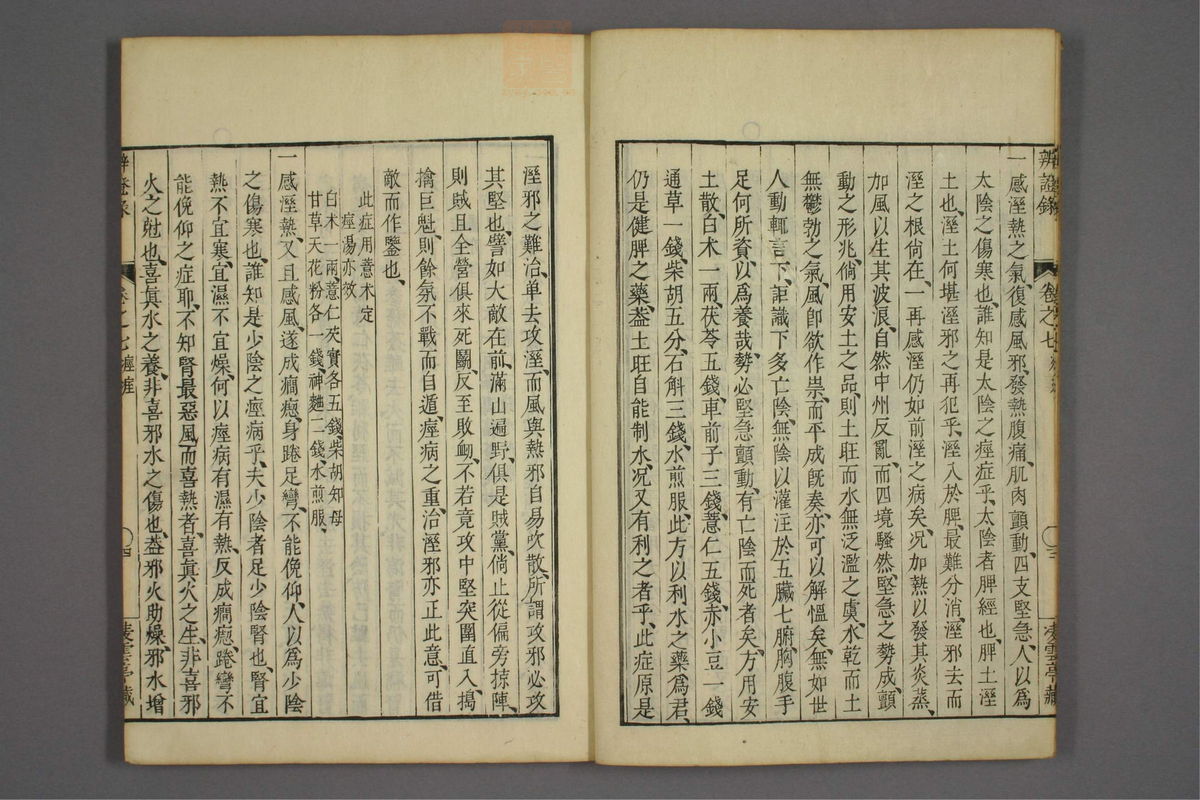 辨證錄 卷之七 三 凌雲亭藏
一感溼熱之氣、復感風邪、發熱腹痛、肌肉顫動、四支堅急、人以為
太陰之傷寒也、誰知是太陰之痙症乎、太陰者脾經也、脾土溼
土也、溼土何堪溼邪之再犯乎、溼入於脾、最難分消、溼邪去而
溼之根尚在、一再感溼仍如前溼之病矣、况加熱以發其炎蒸、
加風以生其波浪、自然中州反亂、而四境騷然、堅急之勢成、顫
動之形兆、倘用安土之品、則土旺而水無泛濫之虞、水乾而土
無鬱勃之氣、風卽欲作祟、而平成旣奏、亦可以解慍矣、無如世
人動輒言下、詎識下多亡陰、無陰以灌注於五臟七腑、胸腹手
足何所資、以爲養哉、勢必堅急顫動、有亡陰而死者矣、方用安
土散、白术一兩、茯苓五錢、車前子三錢、薏仁五錢、赤小豆一錢
通草一錢、柴胡五分、石斛三錢、水煎服、此方以利水之藥爲君、
仍是健脾之藥、葢土旺自能制水、况又有利之者乎、此症原是
溼邪之難治、单去攻溼、而風與熱邪自易吹散、所謂攻邪必攻
其堅也、譬如大敵在前、滿山遍野、俱是賊黨、倘止從偏旁掠陣、
則賊且全營俱來死鬭、反至敗衂、不若竟攻中堅突圍直入、搗
擒巨魁、則餘氛不戰而自遁、痙病之重、治溼邪亦正此意、可借
敵而作鑒也、
此症用薏术定
痙湯亦效
白术一兩薏仁芡實各五錢、柴胡知母
甘草天花粉各一錢、神麯二錢水煎服、
一感溼熱、又且感風、遂成癎瘛、身踡足彎、不能俛仰、人以爲少陰
之傷寒也、誰知是少陰之痙病乎、夫少陰者足少陰腎也、腎宜
熱不宜寒、宜濕不宜燥、何以痙病有濕有熱、反成癎瘛、踡彎不
能俛仰之症耶、不知腎最惡風而喜熱者、喜眞火之生、非喜邪
火之尅也、喜眞水之養、非喜邪水之傷也、葢邪火助燥、邪水增
卷之七 痙痓 四 凌雲亭藏